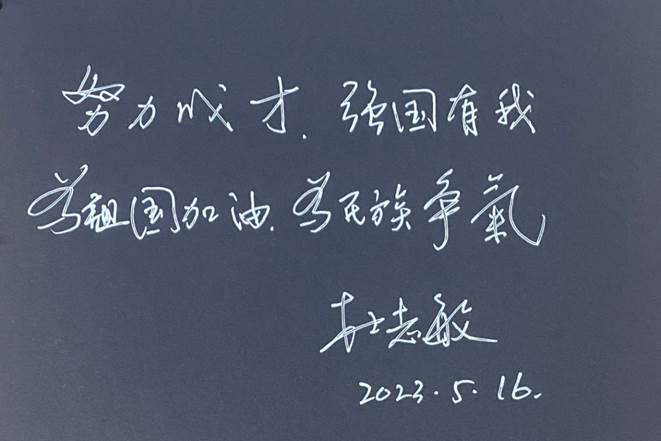 努力成才.强国有我
为祖国加油.为民族争氣
杜志敏
2023.5.16.